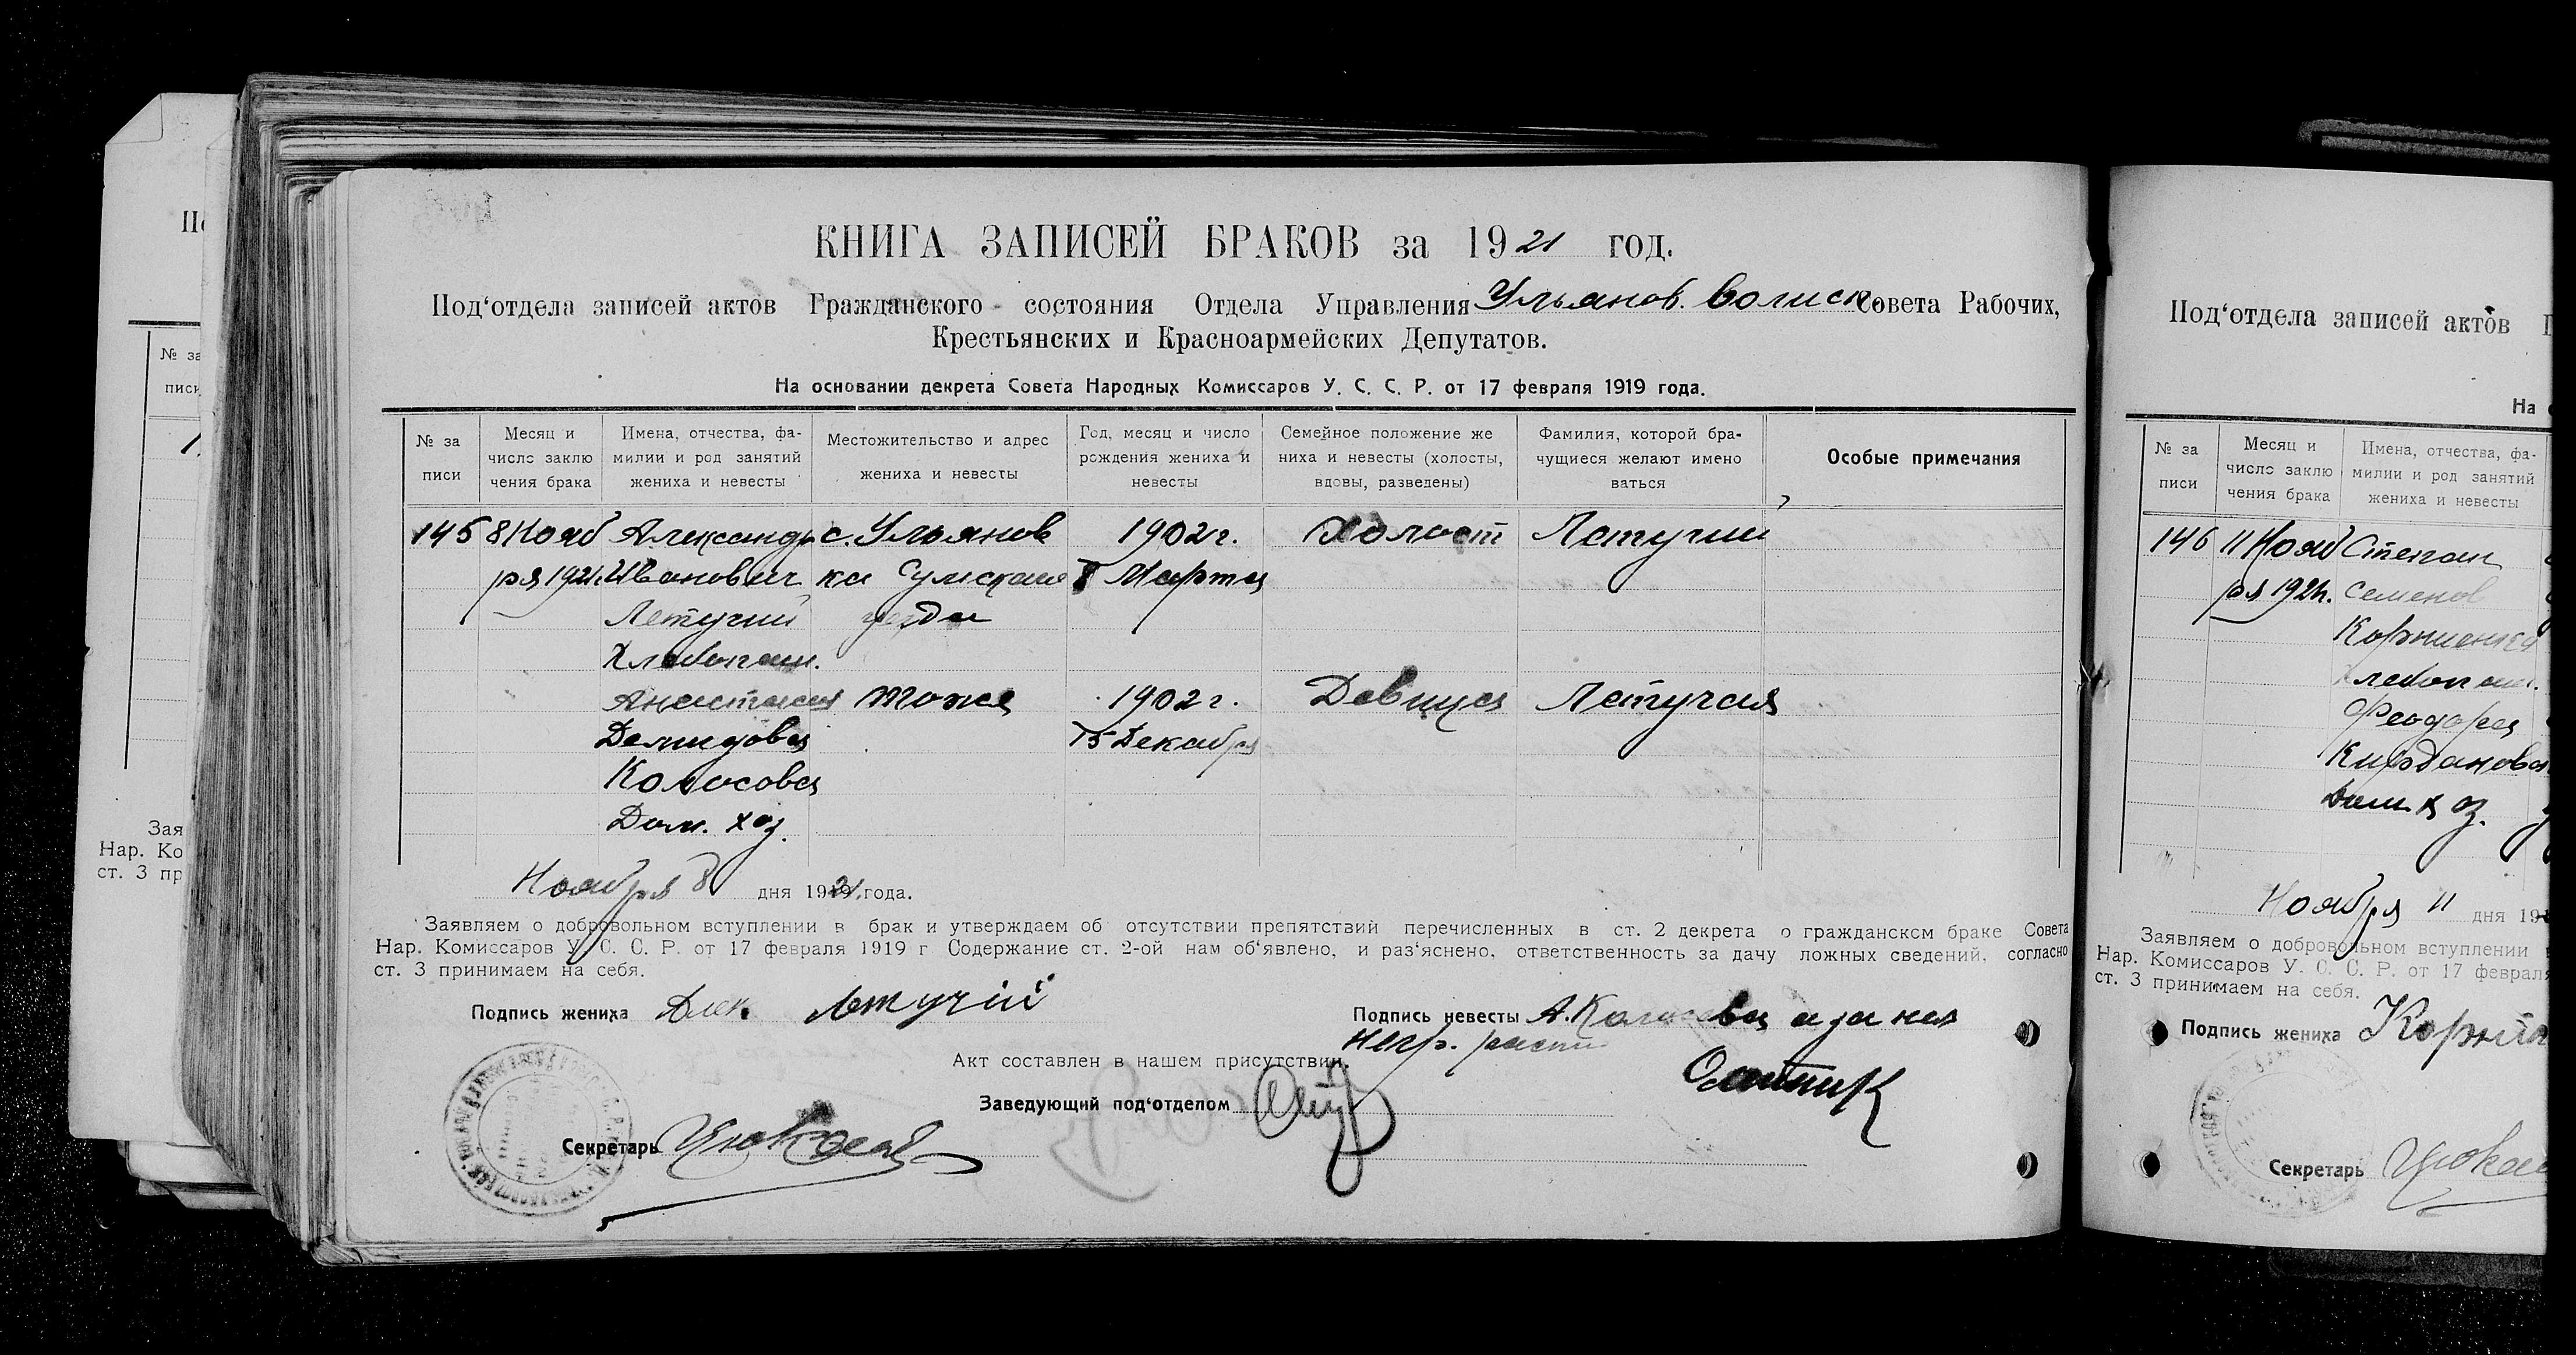 КНИГА ЗАПИСЕЙ БРАКОВ за 1921 год.
Под‘отдела записей актов Гражданского состояния Отдела Управления Ульянов. волиск. Совета Рабочих,
Крестьянских и Красноармейских Депутатов.
На основании декрета Совета Народных Комиссаров У. С. С. Р. от 17 февраля 1919 года.
№ за
писи
Месяц и
число заклю
чения брака
Имена, отчества, фа-
милии и род занятий
жениха и невесты
Местожительство и адрес
жениха и невесты
Год, месяц и число
рождения жениха и
невесты
Семейное положение же
ниха и невесты (холосты,
вдовы, разведены)
Фамилия, которой бра-
чущиеся желают имено
ваться
Особые примечания
145 8 Нояб Александр с. Ульянов 1902 г. Холост Летучий
ря 1921. Иванович ка Сумского Марта
Летучий уезда
Хлебопаш.
Анастасия тоже 1902 г. Девица Летучая
Демидовa 15 Декабря
Колосова
Дом. хоз.
Ноября 8 дня 1921 года.
Заявляем о добровольном вступлении в брак и утверждаем об отсутствии препятствий перечисленных в ст. 2 декрета о гражданском браке Совета
Нар. Комиссаров У. С. С. Р. от 17 февраля 1919 г Содержание ст. 2-ой нам об‘явлено, и раз‘яснено, ответственность за дачу ложных сведений, согласно
ст. 3 принимаем на себя.
Подпись жениха Алек Летучий
Подпись невесты А. Колосова а за нея
негр. расп
Олейник
Акт составлен в нашем присутствии.
Заведующий под‘отделом
Секретарь
№ за
писи
Зая
Нар. Ко
ст. 3 пр
Под‘отдела записей актов Г
На
№ за
писи
Месяц и
число заклю
чения брака
Имена, отчества, фа-
милии и род занятий
жениха и невесты
146 11 Нояб Степан
ря 1921. Семенов
Корниенко
Хлебопаш.
Феодора
Дом. хоз.
Ноября 11 дня 19
Заявляем о добровольном вступлении
Нар. Комиссаров У. С. С. Р. от 17 феврал
ст. 3 принимаем на себя.
Подпись жениха
Секретарь